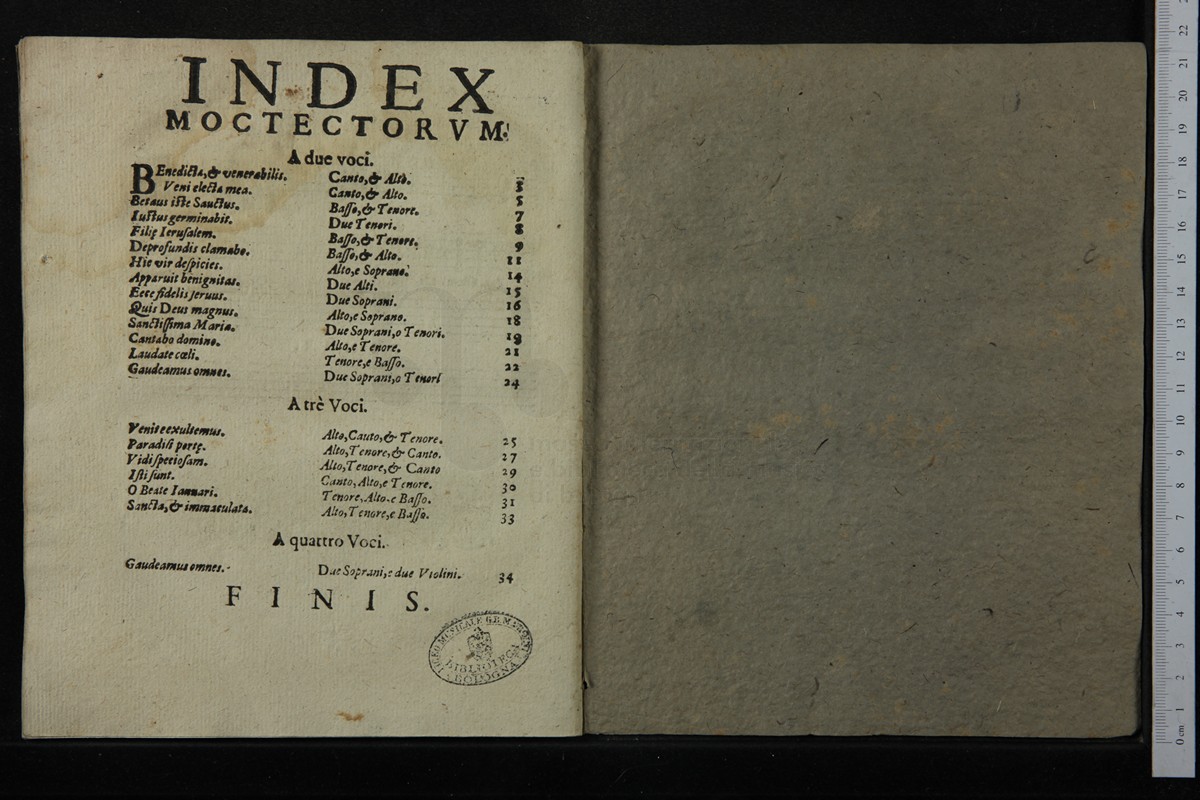 INDEX
MOCTECTORVM.
A due voci.
BEnedicta, & venerabilis. Canto, & Alto. 3
Veni electa mea. Canto, & Alto. 5
Betaus iste Sauctus. Basso, & Tenore. 7
Iustus germinabit. Due Tenori. 8
Filię Ierusalem. Basso, & Tenore. 9
Deprofundis clamabo. Basso, & Alto. 11
Hic vir despicies. Alto, e Soprano. 14
Apparuit benignitas. Due Alti. 15
Ecce fidelis seruus. Due Soprani. 16
Quis Deus magnus. Alto, e Soprano. 18
Sanctissima Maria. Due Soprani, o Tenori. 19
Cantabo domino. Alto, e Tenore. 21
Laudate cœli. Tenore, e Basso. 22
Gaudeamus omnes. Due Soprani, o Tenori 24
A trè Voci.
Venite exultemus. Alto, Cauto, & Tenore. 25
Paradisi portę. Alto, Tenore, & Canto. 27
Vidi speciosam. Alto, Tenore, & Canto 29
Isti sunt. Canto, Alto, e Tenore. 30
O Beate Ianuari. Tenore, Alto, e Basso. 31
Sancta, & immaculata. Alto, Tenore, e Basso. 33
A quattro Voci.
Gaudeamus omnes. Due Soprani, e due Violini. 34
FINIS.
LICEO MUSICALE G.B. MARTINI
BIBLIOTECA
BOLOGNA
22
21
20
19
18
17
16
15
14
13
12
11
10
9
8
7
6
5
4
3
2
1
0 cm